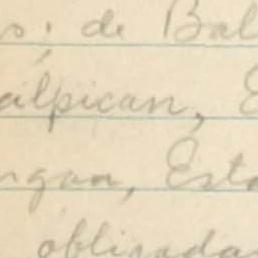 s; de Bal
alpican, E
ngan, Esta
obligadas